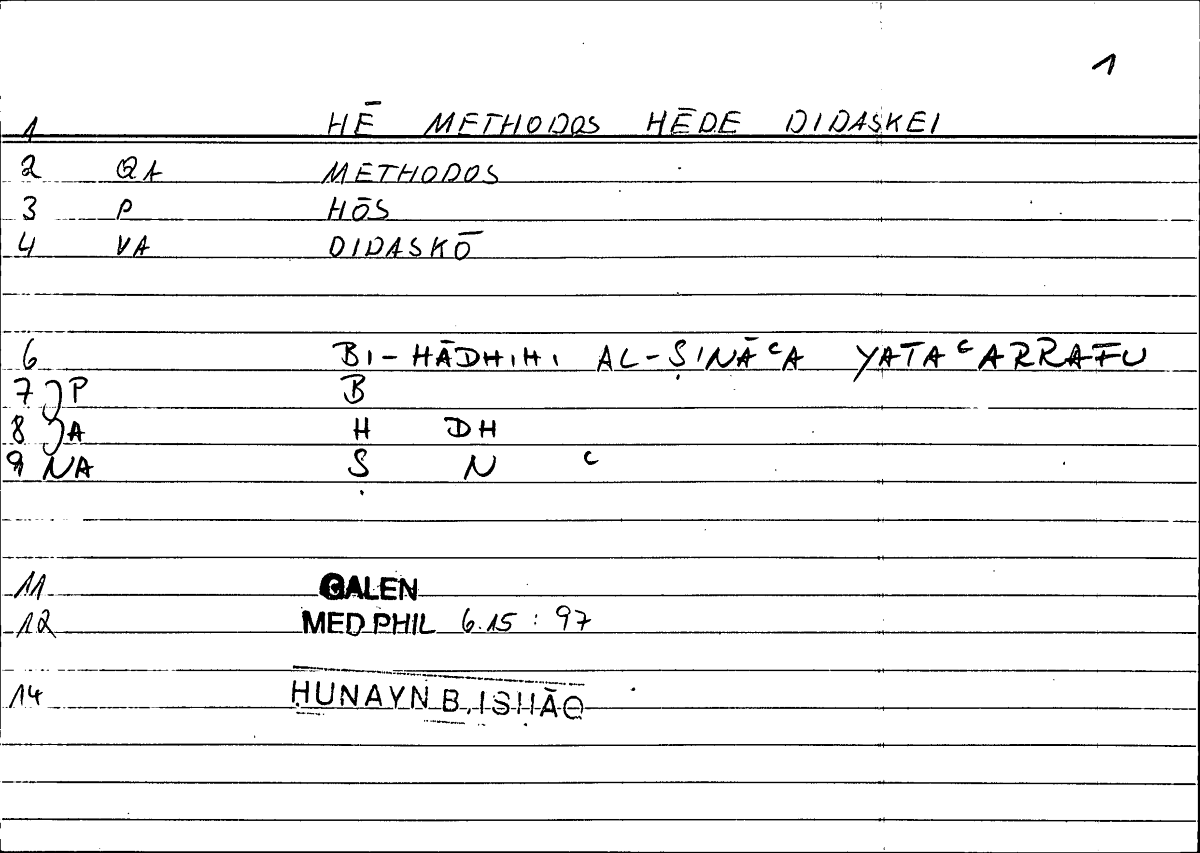 1
1 HĒ METHODOS HĒDE DIDASKEI
2 QA METHODOS
3 P HŌS
4 VA DIDASKŌ
6 BI-HĀDHIHI AL-ṢINĀᶜA YATAᶜARRAFU
7 P B
8 A H DH
9 NA Ṣ N ᶜ
11 GALEN
12 MED PHIL 6.15 : 97
14 ḤUNAYN B. ISḤĀQ